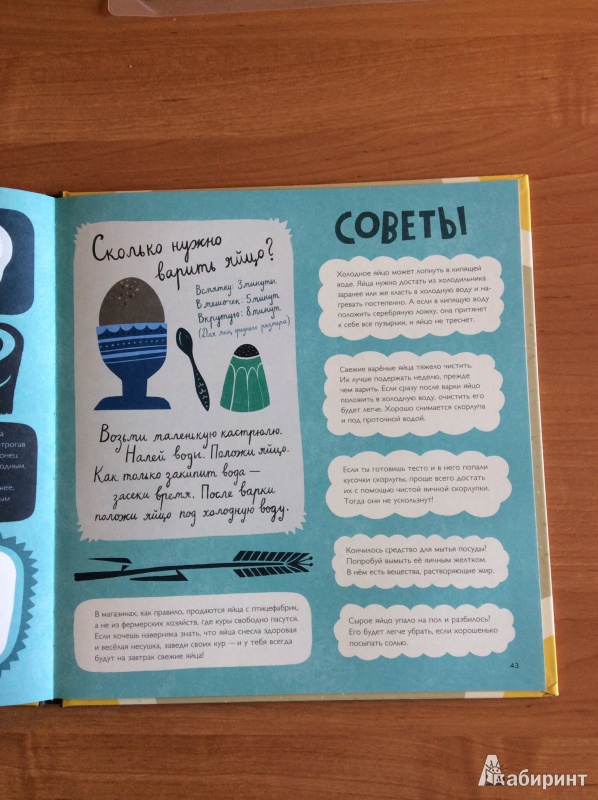 Сколько нужно
варить яйцо?
Всмятку: 3 минуты
В мешочек: 5 минут
Вкрутую: 8 минут
(Для яиц среднего размера)
Возьми маленькую кастрюлю.
Налей воды. Положи яйцо.
Как только закипит вода —
засеки время. После варки
положи яйцо под холодную воду.
В магазинах, как правило, продаются яйца с птицефабрик,
а не из фермерских хозяйств, где куры свободно пасутся.
Если хочешь наверняка знать, что яйца снесла здоровая
и весёлая несушка, заведи своих кур — и у тебя всегда
будут на завтрак свежие яйца!
СОВЕТЫ
Холодное яйцо может лопнуть в кипящей
воде. Яйца нужно достать из холодильника
заранее или же класть в холодную воду и на-
гревать постепенно. А если в кипящую воду
положить серебряную ложку, она притянет
к себе все пузырьки, и яйцо не треснет.
Свежие варёные яйца тяжело чистить.
Их лучше подержать неделю, прежде
чем варить. Если сразу после варки яйцо
положить в холодную воду, очистить его
будет легче. Хорошо снимается скорлупа
и под проточной водой.
Если ты готовишь тесто и в него попали
кусочки скорлупы, проще всего достать
их с помощью чистой яичной скорлупки.
Тогда они не ускользнут!
Кончилось средство для мытья посуды?
Попробуй вымыть её яичным желтком.
В нём есть вещества, растворяющие жир.
Сырое яйцо упало на пол и разбилось?
Его будет легче убрать, если хорошенько
посыпать солью.
43
Лабиринт